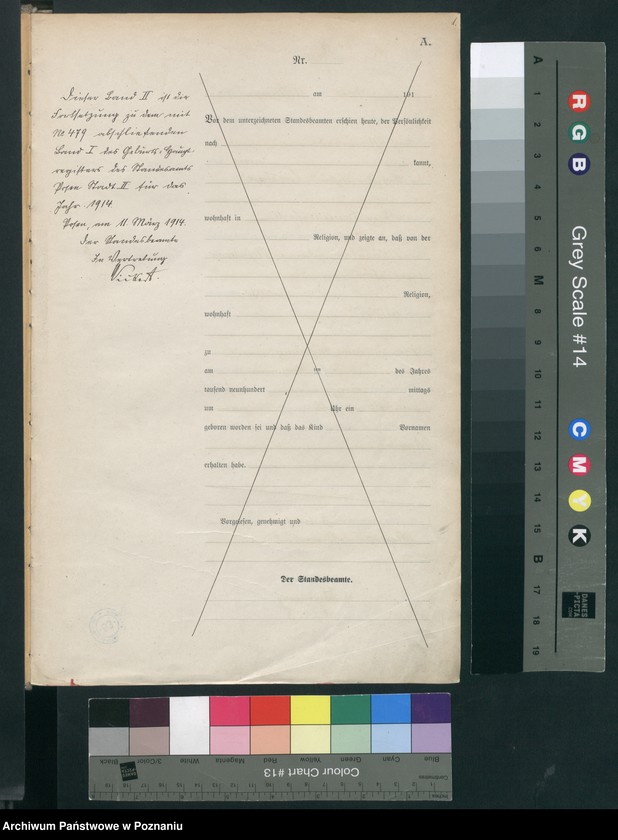 A.
Nr.
Dieser Band II ist der
Fortsetzung zu dem mit
No 479 abschließenden
Band I des Geburts-Haupt-
registers des Standesamts
Posen Stadt II für das
Jahr 1914.
Posen, am 11. März 1914.
Der Standesbeamte
In Vertretung
am 191
Vor dem unterzeichneten Standesbeamten erschien heute, der Persönlichkeit
nach
kannt,
wohnhaft in
Religion, und zeigte an, daß von der
Religion,
wohnhaft
zu
am des Jahres
tausend neunhundert mittags
um Uhr ein
geboren worden sei und daß das Kind Vornamen
erhalten habe.
Vorgelesen, genehmigt und
Der Standesbeamte.
A 1 2 3 4 5 6 M 8 9 10 11 12 13 14 15 B 17 18 19
R G B
Grey Scale #14
C M Y K
DANES
PICTA
.COM
Blue Cyan Green Yellow Red Magenta White 3/Color Black
Colour Chart #13
Archiwum Państwowe w Poznaniu